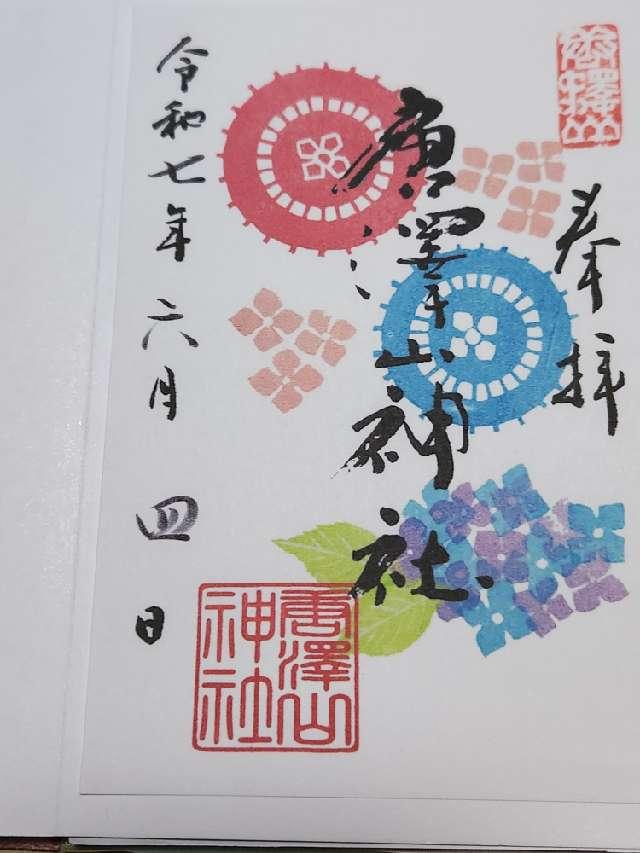 唐澤山
奉拝
唐澤山神社
唐澤山
神社
令和七年六月四日